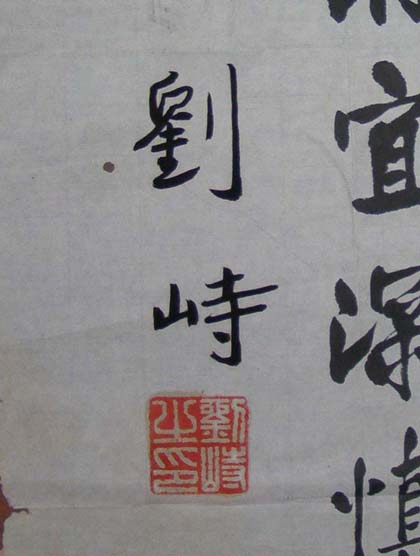 宜深慎
劉峙
劉峙之印